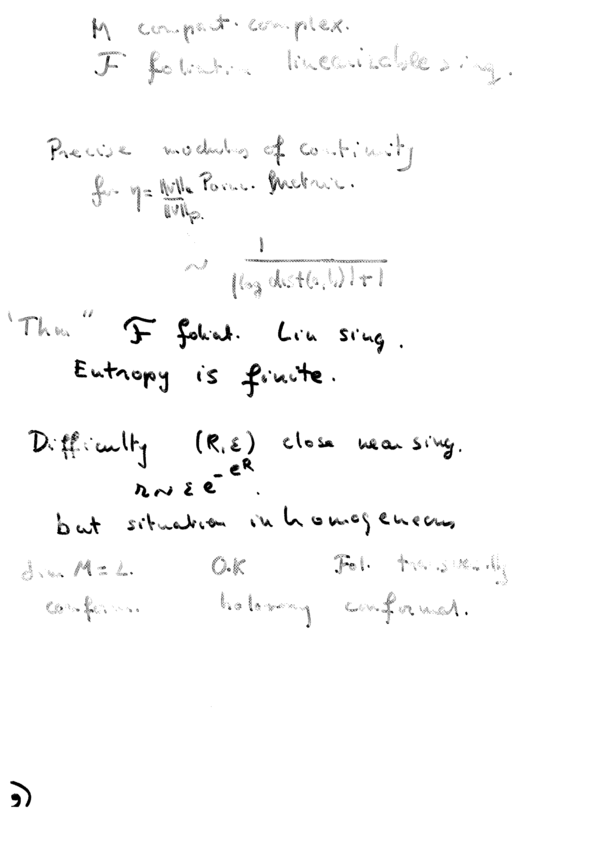 M compact complex.
F foliation linearizable sing.
Precise modulus of continuity
for η = ||v|| / ||v||p Poinc. Metric.
~ 1 / |log dist(a,b)|+1
"Thm" F foliat. Lin sing.
Entropy is finite.
Difficulty (R,ε) close near sing.
r ~ ε e^-e^R.
but situation inhomogeneous
dim M = 2. O.K Fol. transversally
conform. holonomy conformal.
9)